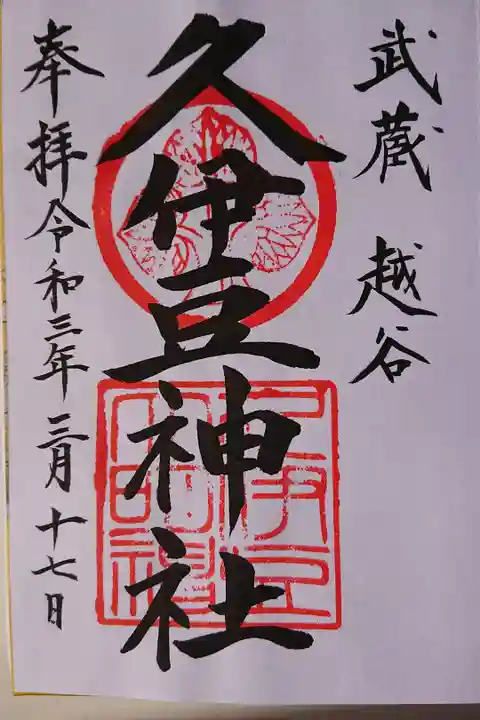 武蔵 越谷
久伊豆神社
奉拝令和三年三月十七日